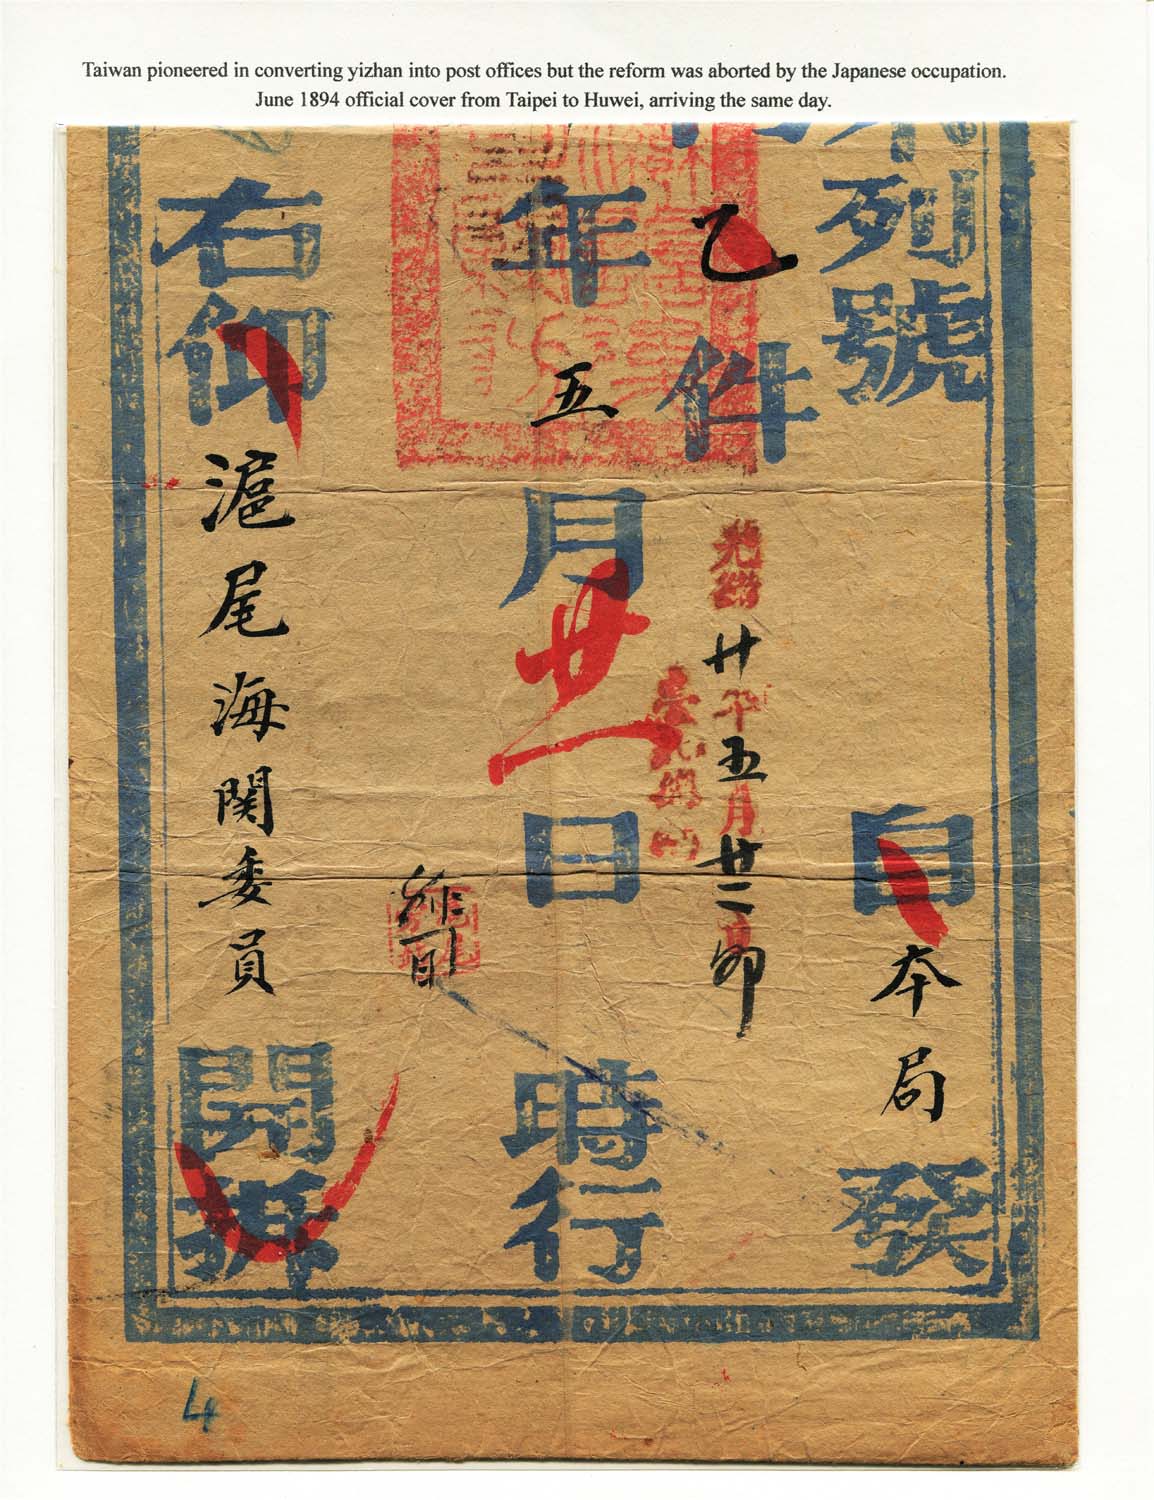 Taiwan pioneered in converting yizhan into post offices but the reform was aborted by the Japanese occupation.
June 1894 official cover from Taipei to Huwei, arriving the same day.
列號
自本局發
乙件
光緒廿年五月廿二卯
年五月廿一日時行
右仰滬尾海関委員開拆
4